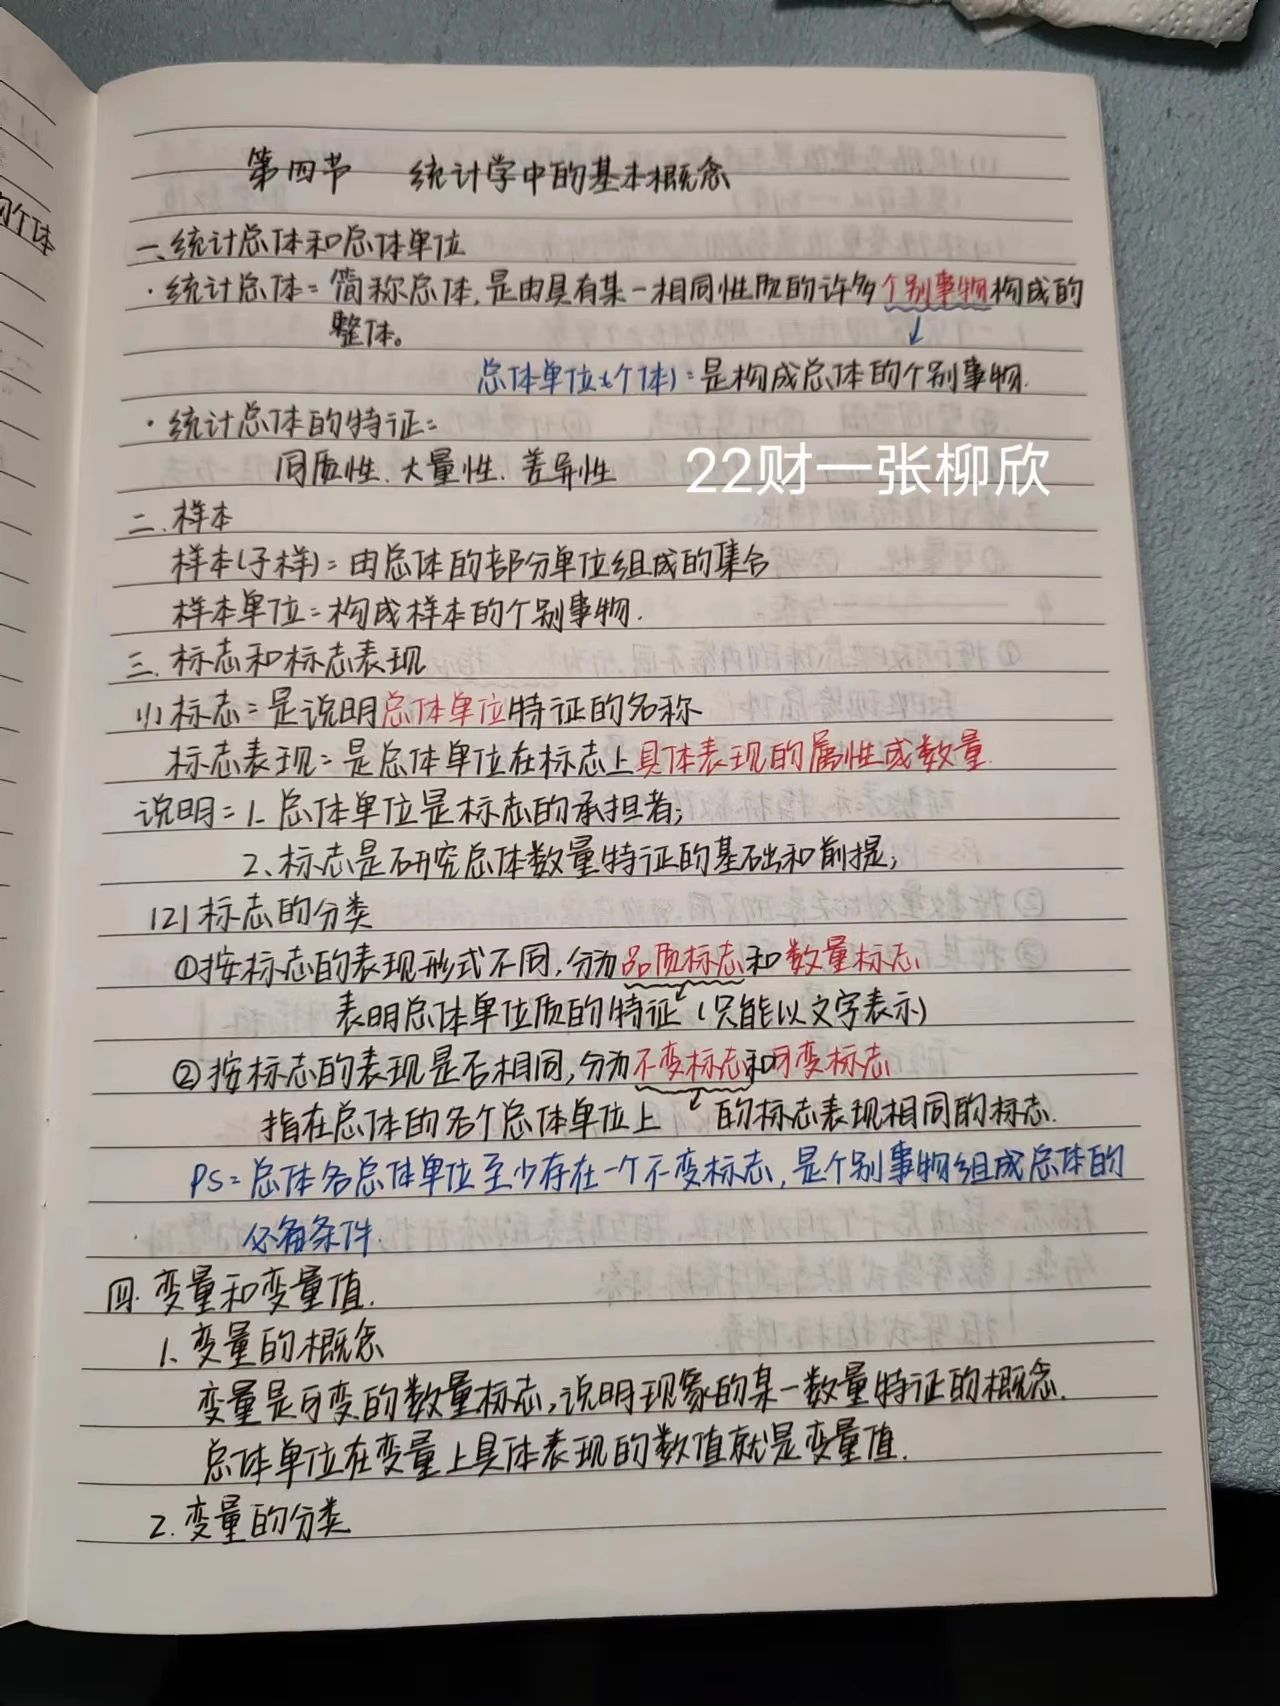 第四节 统计学中的基本概念
一、统计总体和总体单位
·统计总体:简称总体,是由具有某一相同性质的许多个别事物构成的
整体。
总体单位(个体):是构成总体的个别事物.
·统计总体的特征:
同质性、大量性、差异性
22财一张柳欣
二.样本
样本(子样):由总体的部分单位组成的集合
样本单位:构成样本的个别事物.
三.标志和标志表现
(1)标志:是说明总体单位特征的名称
标志表现:是总体单位在标志上具体表现的属性或数量.
说明:1.总体单位是标志的承担者;
2、标志是研究总体数量特征的基础和前提;
(2)标志的分类
①按标志的表现形式不同,分为品质标志和数量标志
表明总体单位质的特征(只能以文字表示)
②按标志的表现是否相同,分为不变标志和可变标志
指在总体的各个总体单位上 的标志表现相同的标志.
PS:总体各总体单位至少存在一个不变标志,是个别事物组成总体的
必备条件.
四.变量和变量值.
1.变量的概念
变量是可变的数量标志,说明现象的某一数量特征的概念.
总体单位在变量上具体表现的数值就是变量值.
2.变量的分类
的个体